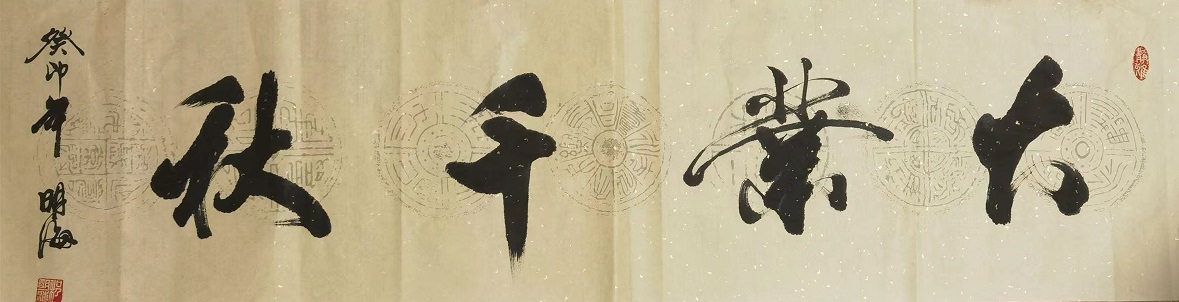 大業千秋
癸卯年 明海